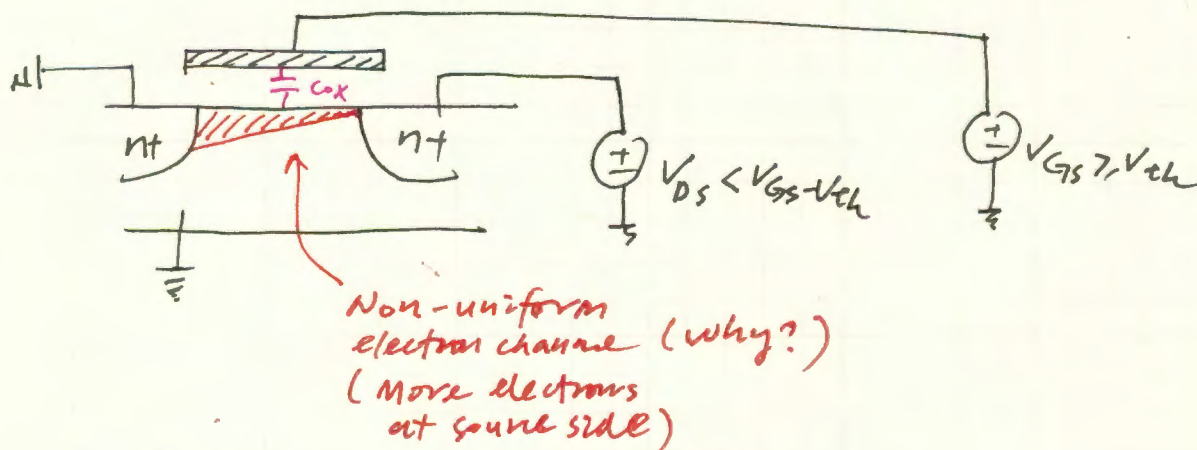 Cox
n+
n+
VDS < VGS-Vth
VGS ≥ Vth
Non-uniform
electron channe (why?)
(More electrons
at source side)